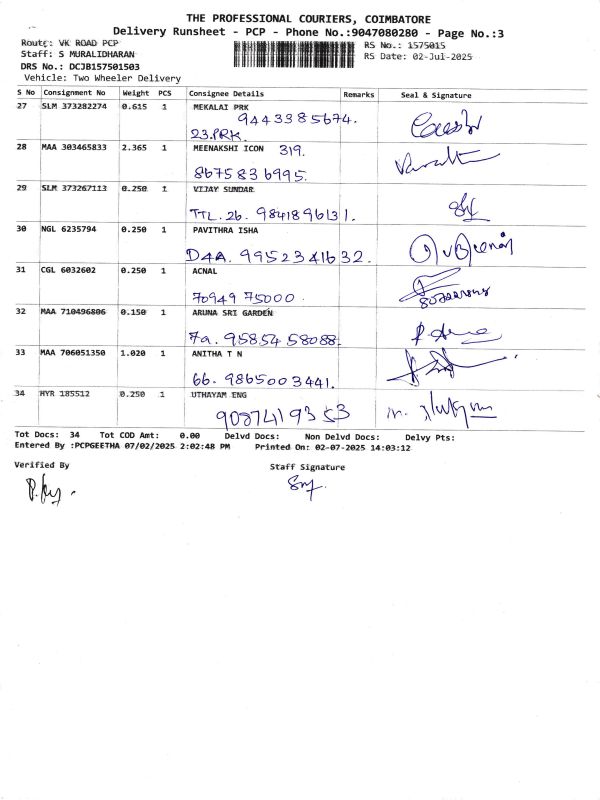 THE PROFESSIONAL COURIERS, COIMBATORE
Delivery Runsheet - PCP - Phone No.:9047080280 - Page No.:3
Route: VK ROAD PCP
RS No.: 1575015
Staff: S MURALIDHARAN
RS Date: 02-Jul-2025
DRS No.: DCJB157501503
Vehicle: Two Wheeler Delivery
S No Consignment No Weight PCS Consignee Details Remarks Seal & Signature
27 SLM 373282274 0.615 1 MEKALAI PRK
9443385674.
23.PRK.
28 MAA 303465833 2.365 1 MEENAKSHI ICON 319.
8675836995.
29 SLM 373267113 0.250 1 VIJAY SUNDAR
TTL.26. 9841896131.
30 NGL 6235794 0.250 1 PAVITHRA ISHA
D4A. 9952341632.
31 CGL 6032602 0.250 1 ACNAL
70949 75000
32 MAA 710496806 0.150 1 ARUNA SRI GARDEN
7a. 95854 58088.
33 MAA 706051350 1.020 1 ANITHA T N
66. 9865003441.
34 HYR 185512 0.250 1 UTHAYAM ENG
9087419353
Tot Docs: 34 Tot COD Amt: 0.00 Delvd Docs: Non Delvd Docs: Delvy Pts:
Entered By :PCPGEETHA 07/02/2025 2:02:48 PM Printed On: 02-07-2025 14:03:12
Verified By
Staff Signature